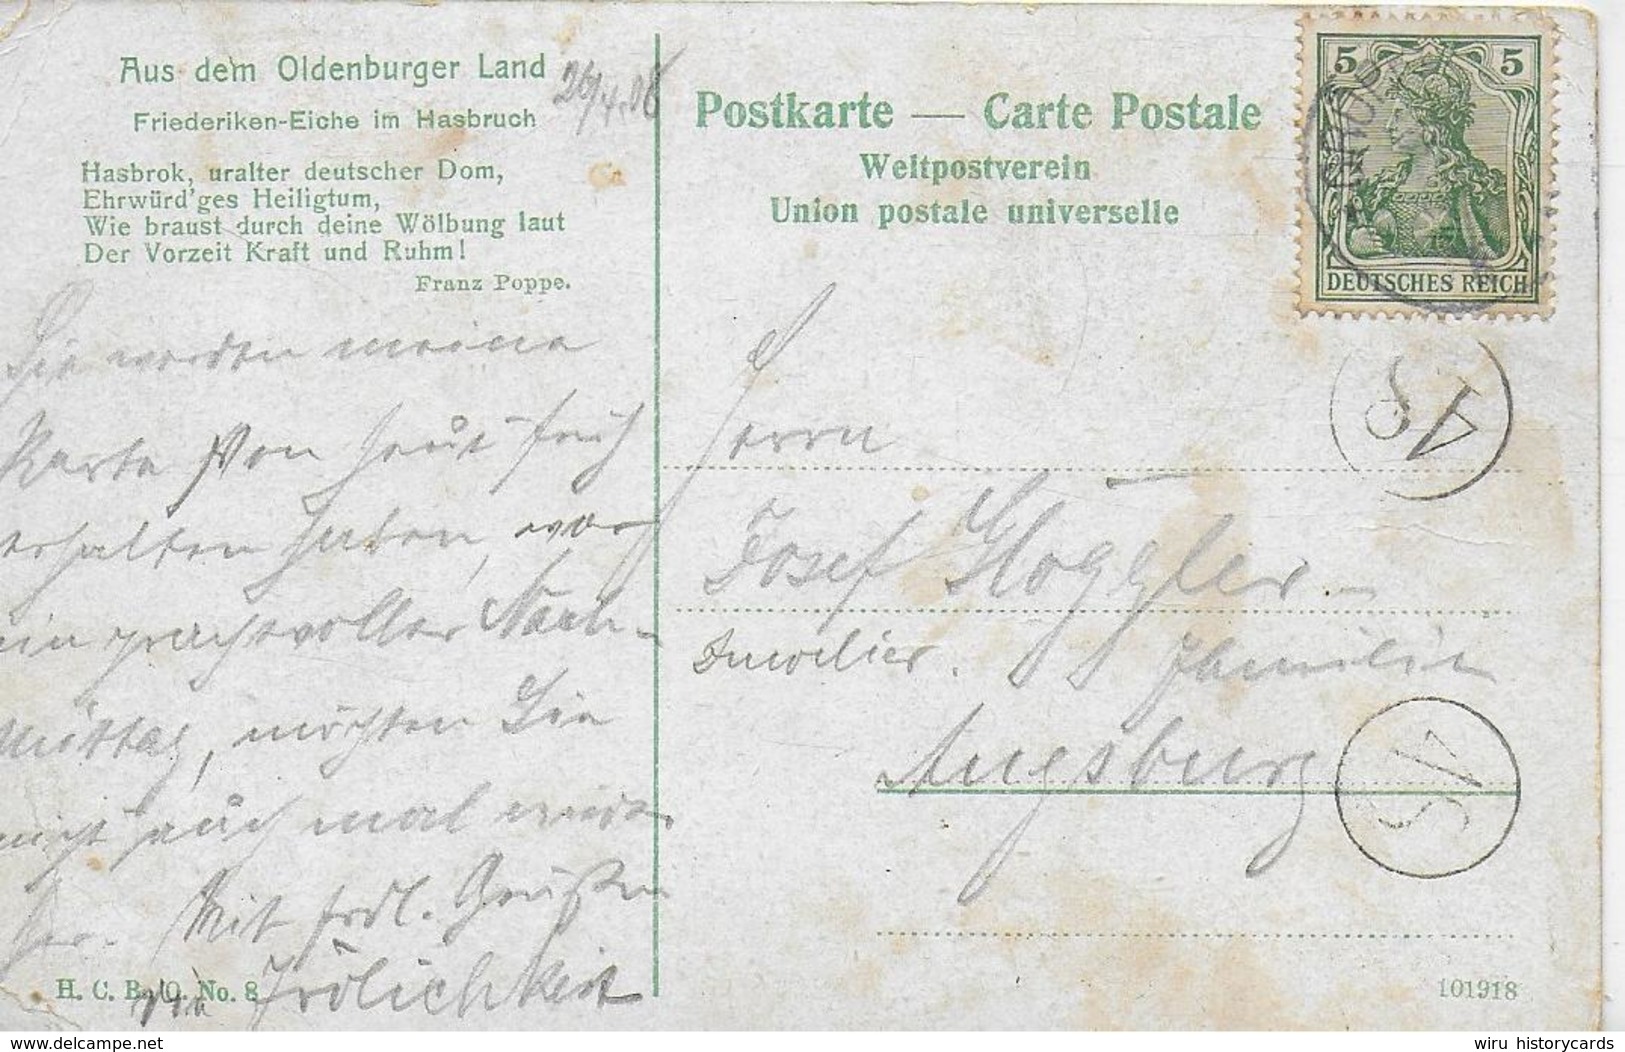 Aus dem Oldenburger Land
Friederiken-Eiche im Hasbruch
26/4.06
Hasbrok, uralter deutscher Dom,
Ehrwürd'ges Heiligtum,
Wie braust durch deine Wölbung laut
Der Vorzeit Kraft und Ruhm!
Franz Poppe.
Sie werden meine
Karte von heut früh
erhalten haben,
ein prachtvoller Nach-
mittag, möchten Sie
nicht auch mal wieder
her. Mit frdl. Grüßen
Fröhlichkeit
H. C. B. O. No. 8
Postkarte — Carte Postale
Weltpostverein
Union postale universelle
5 5
DEUTSCHES REICH
48
Herrn
Josef Gloggler
Juwelier. Familie
Augsburg
15
101918
wiru historycards